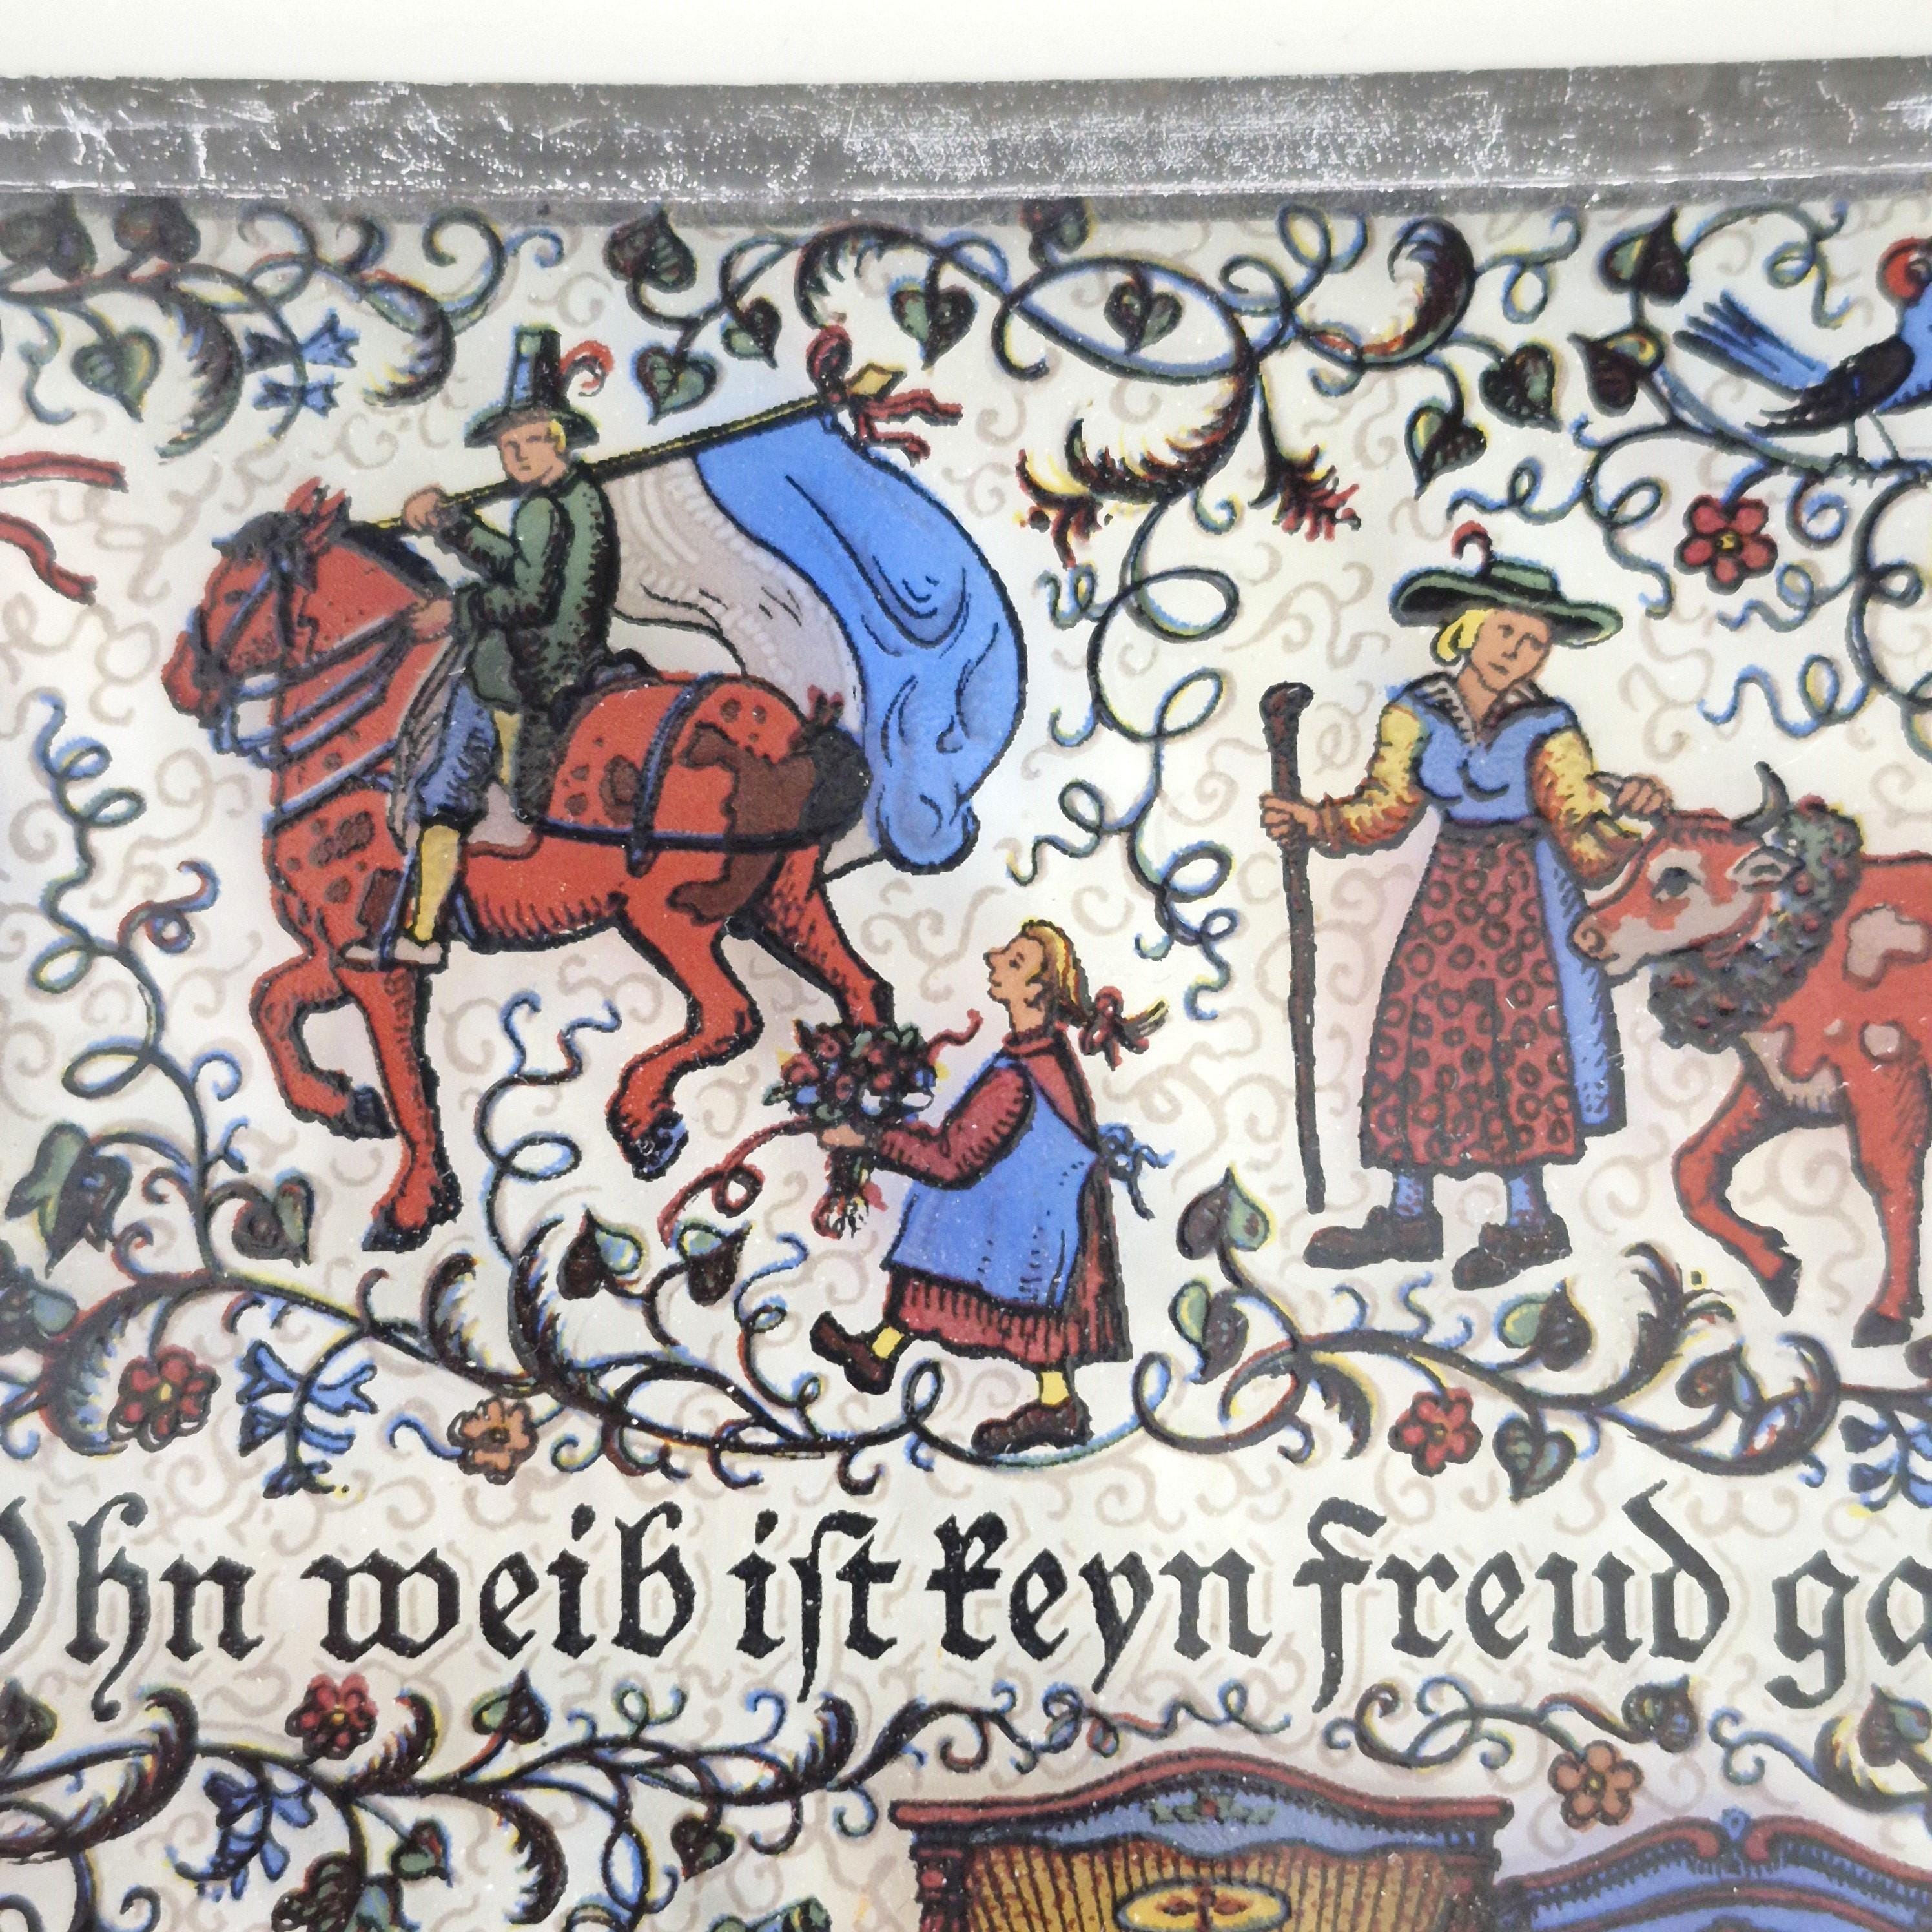 Ohn weib iſt keyn freud ga